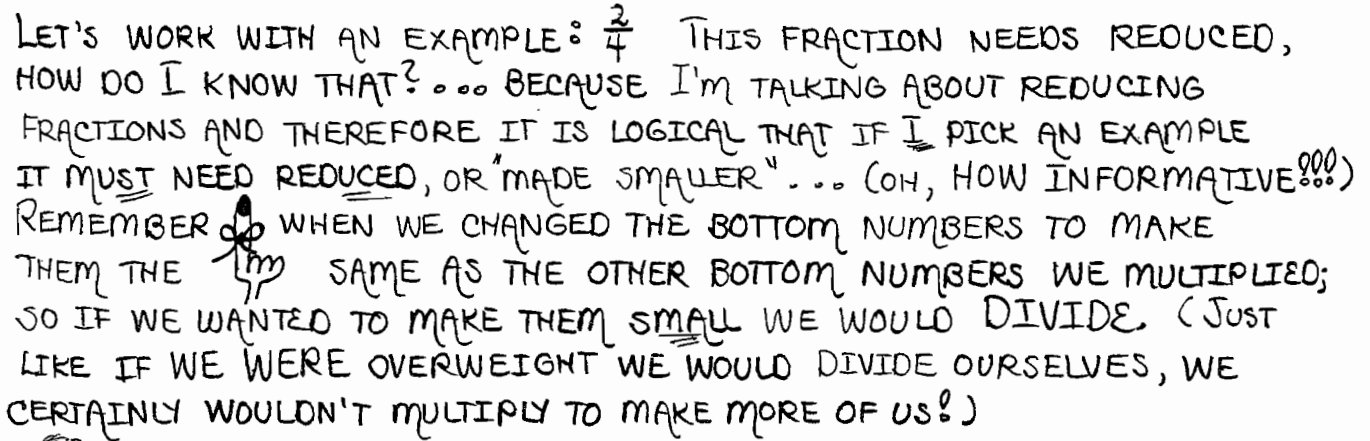 LET'S WORK WITH AN EXAMPLE: 2/4 THIS FRACTION NEEDS REDUCED,
HOW DO I KNOW THAT?... BECAUSE I'M TALKING ABOUT REDUCING
FRACTIONS AND THEREFORE IT IS LOGICAL THAT IF I PICK AN EXAMPLE
IT MUST NEED REDUCED, OR "MADE SMALLER"... (OH, HOW INFORMATIVE!!!)
REMEMBER WHEN WE CHANGED THE BOTTOM NUMBERS TO MAKE
THEM THE SAME AS THE OTHER BOTTOM NUMBERS WE MULTIPLIED;
SO IF WE WANTED TO MAKE THEM SMALL WE WOULD DIVIDE. (JUST
LIKE IF WE WERE OVERWEIGHT WE WOULD DIVIDE OURSELVES, WE
CERTAINLY WOULDN'T MULTIPLY TO MAKE MORE OF US!)